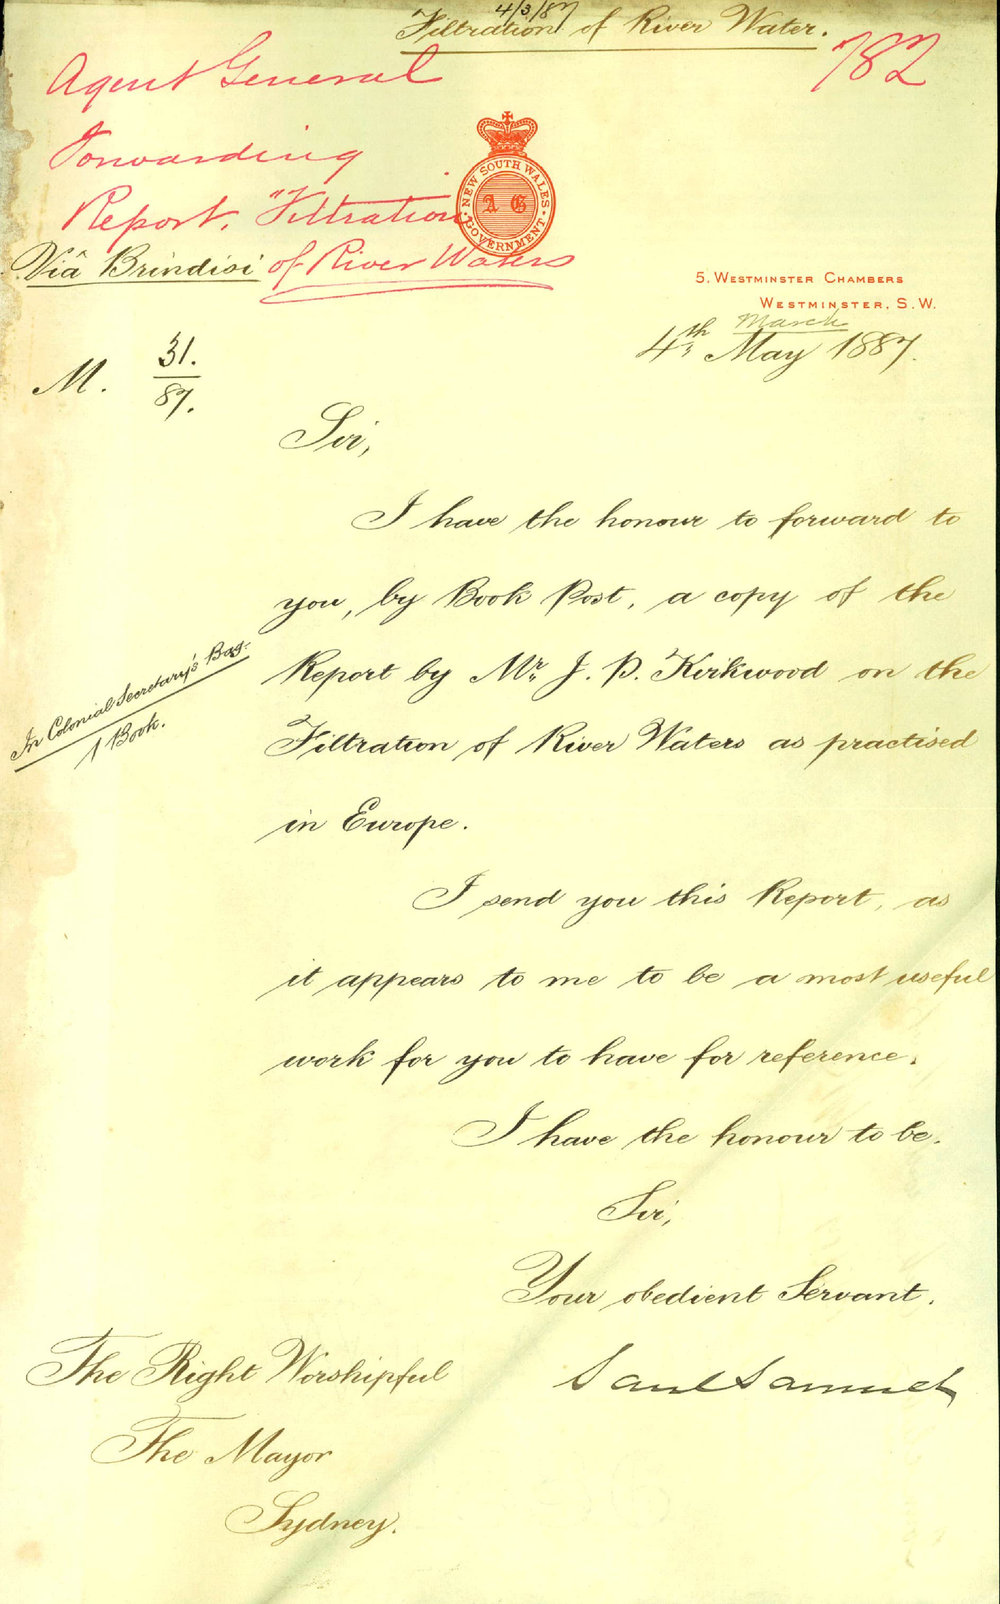 4/3/87
Filtration of River Water.
782
Agent General
Forwarding
Report, "Filtration
of River Waters
NEW SOUTH WALES
A G
GOVERNMENT
Viâ Brindisi
5, WESTMINSTER CHAMBERS
WESTMINSTER, S.W.
March
4th May 1887.
M. 31.
87.
Sir,
I have the honour to forward to
you, by Book Post, a copy of the
Report by Mr. J. P. Kirkwood on the
Filtration of River Waters as practised
in Europe.
In Colonial Secretary's Bag-
1 Book.
I send you this Report, as
it appears to me to be a most useful
work for you to have for reference.
I have the honour to be.
Sir,
Your obedient Servant.
Saul Samuel
The Right Worshipful
The Mayor
Sydney.